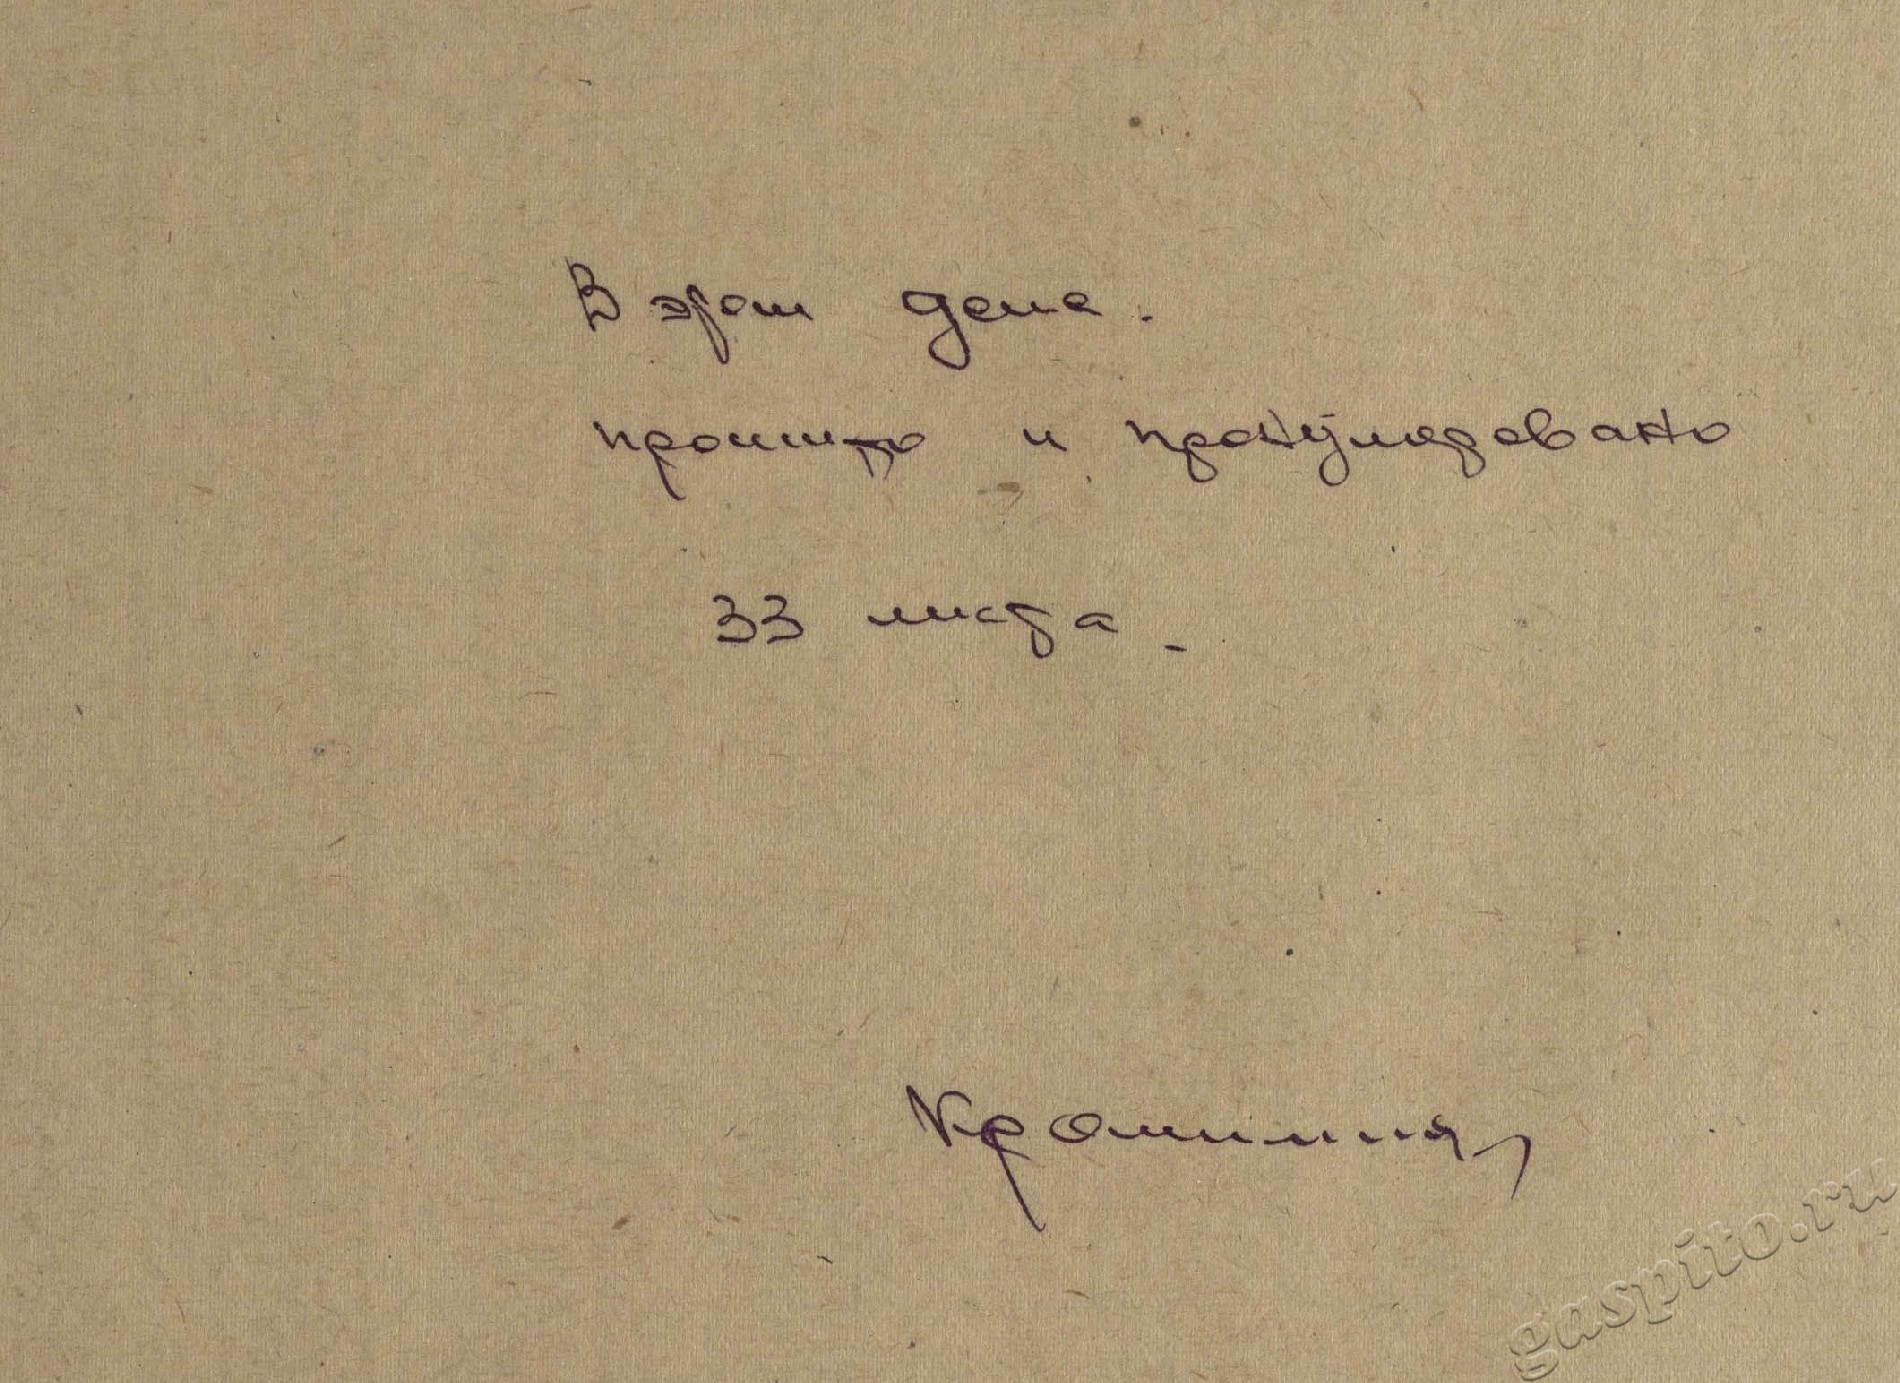 В этом деле.
прошито и пронумеровано
33 листа.
gaspito.ru